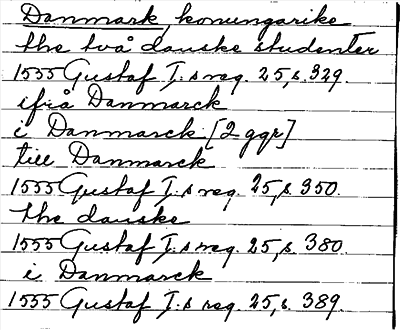 Danmark, konungarike
the två danske studenter
1555 Gustaf I:s reg. 25, s. 329.
ifrå Danmarck
i Danmarck [2 ggr]
till Danmarck
1555 Gustaf I:s reg. 25, s. 350.
the danske
1555 Gustaf I:s reg. 25, s. 380.
i Danmarck
1555 Gustaf I:s reg. 25, s. 389.